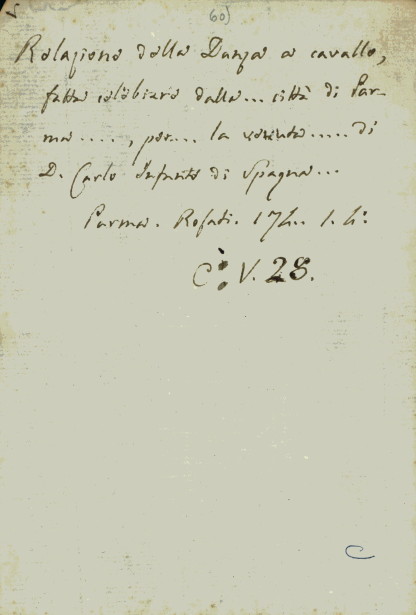 60)
Relazione della Danza a cavallo,
fatta celebrare dalla... città di Par-
ma ....., per... la venuta..... di
D. Carlo Infante di Spagna...
Parma. Rosati. 174.. 1. 4:
C: V. 28.
C